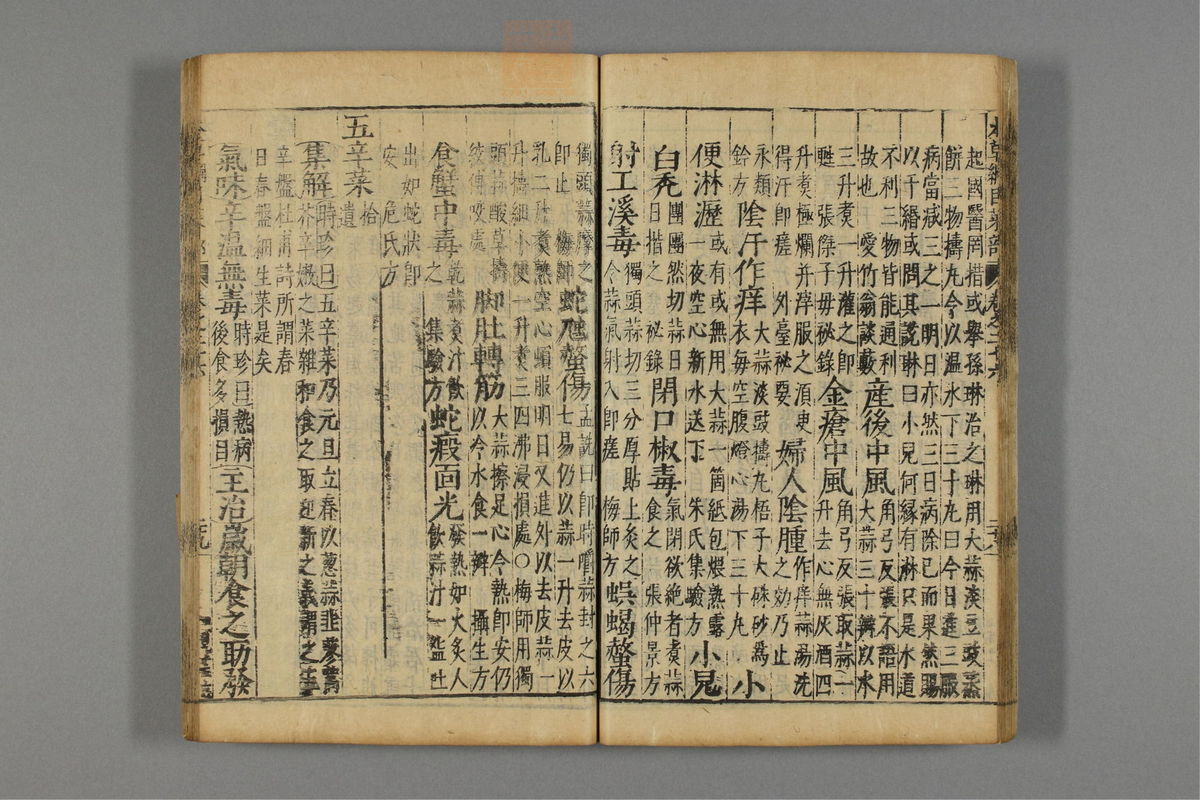 本草綱目菜部 卷之二十六
起國醫罔措或舉孫琳治之琳用大蒜淡豆豉蒸
餅三物擣丸令以温水下三十丸曰今日進三服
病當減三之一明日亦然三日病除已而果然賜
以千緡或問其説琳曰小兒何緣有淋只是水道
不利三物皆能通利
故也 愛竹翁談藪
產後中風
角弓反張不語用
大蒜三十瓣以水
三升煮一升灌之即
甦 張傑子母祕錄
金瘡中風
角弓反張取蒜一
升去心無灰酒四
升煮極爛并滓服之須臾
得汗即瘥 外臺祕要
婦人陰腫
作痒蒜湯洗
之効乃止
永類
鈐方
陰汗作痒
大蒜淡豉擣丸梧子大硃砂爲
衣每空腹燈心湯下三十九
小
便淋瀝
或有或無用大蒜一箇紙包煨熟露
一夜空心新水送下 朱氏集驗方
小兒
白禿
團團然切蒜日
日揩之 祕錄
閉口椒毒
氣閉欲絶者煮蒜
食之 張仲景方
射工溪毒
獨頭蒜切三分厚貼上灸之
令蒜氣射入即瘥 梅師方
蜈蝎螫傷
獨頭蒜摩之
即止 梅師
蛇虺螫傷
孟詵曰即時嚼蒜封之六
七易仍以蒜一升去皮以
乳二升煮熟空心頓服明日又進外以去皮蒜一
升擣細小便一升煮三四沸浸損處○梅師用獨
頭蒜酸草擣
絞傅咬處
脚肚轉筋
大蒜擦足心令熱即安仍
以冷水食一瓣 攝生方
食蟹中毒
乾蒜煮汁飲
之 集驗方
蛇瘕面光
發熱如火炙人
飲蒜汁一盌吐
出如蛇狀即
安 危氏方
五辛菜
拾
遺
集解
時珍曰五辛菜乃元旦立春以葱蒜韭蓼蒿
芥辛嫩之菜雜和食之取迎新之義謂之五
辛盤杜甫詩所謂春
日春盤細生菜是矣
氣味辛溫無毒
時珍曰熱病
後食多損目
主治歲朝食之助發